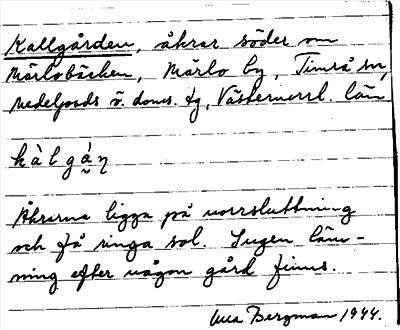 Kallgården, åkrar söder om
Märlobäcken, Märlo by, Timrå sn,
Medelpads ö. doms. tg, Västernorrl. län
kàlgán
Åkrarna ligga på norrsluttning
och få ringa sol. Ingen läm-
ning efter någon gård finns.
Bergman 1944.